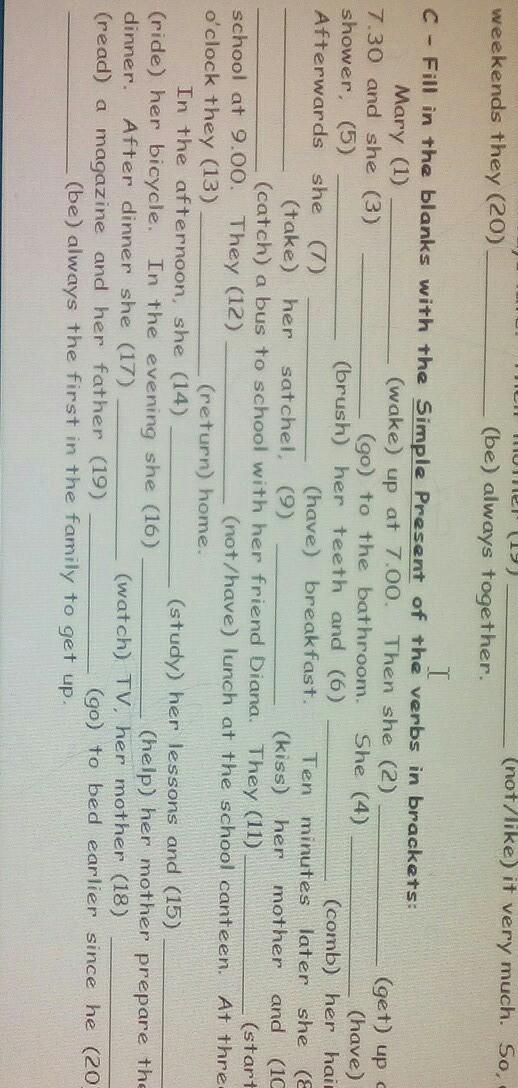 weekends they (20) ________ (be) always together. (not/like) it very much. So,
C - Fill in the blanks with the Simple Present of the verbs in brackets:
Mary (1) ________ (wake) up at 7.00. Then she (2) ________ (get) up
7.30 and she (3) ________ (go) to the bathroom. She (4) ________ (have)
shower, (5) ________ (brush) her teeth and (6) ________ (comb) her hai
Afterwards she (7) ________ (have) breakfast. Ten minutes later she (8
________ (take) her satchel, (9) ________ (kiss) her mother and (10
________ (catch) a bus to school with her friend Diana. They (11) ________ (start
school at 9.00. They (12) ________ (not/have) lunch at the school canteen. At thre
o'clock they (13) ________ (return) home.
In the afternoon, she (14) ________ (study) her lessons and (15) ________
(ride) her bicycle. In the evening she (16) ________ (help) her mother prepare the
dinner. After dinner she (17) ________ (watch) TV, her mother (18) ________
(read) a magazine and her father (19) ________ (go) to bed earlier since he (20
________ (be) always the first in the family to get up.